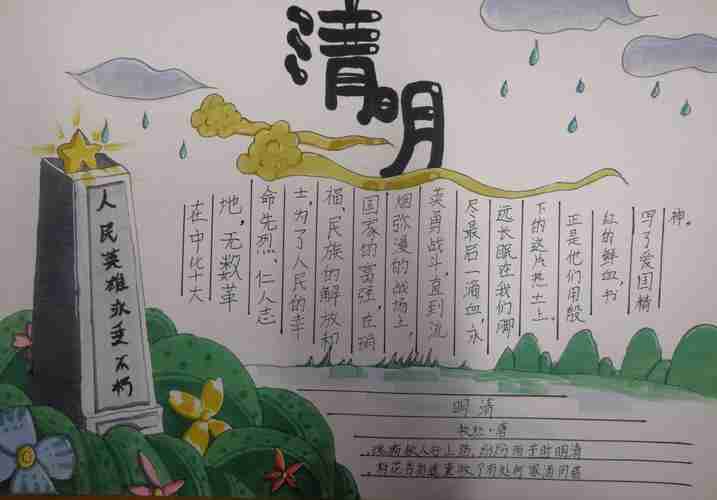 清明
人民英雄永垂不朽
在中化十大
地,无数革
命先烈、仁人志
士,为了人民的幸
福、民族的解放和
国家的富强,在硝
烟弥漫的战场上,
英勇战斗,直到流
尽最后一滴血,永
远长眠在我们脚
下的这片热土上。
正是他们用殷
红的鲜血,书
写了爱国精
神。
明清
·唐
魂断欲人行上路,纷纷雨节时明清
村花杏指遥童牧有处何家酒问借